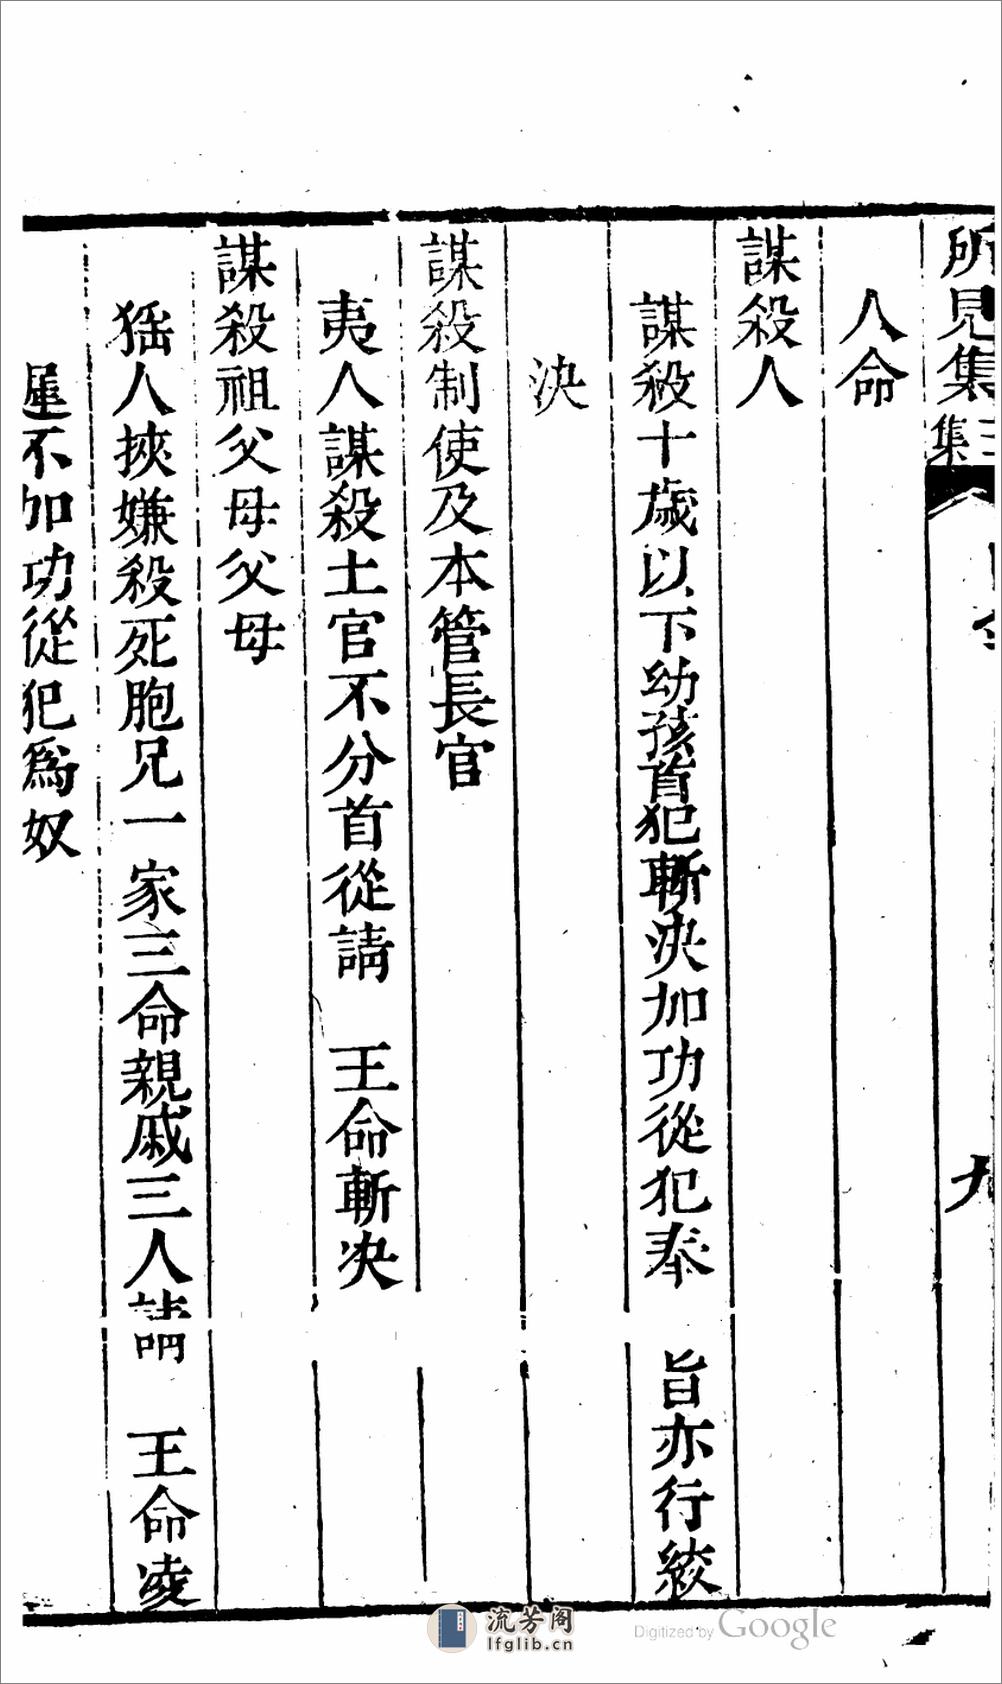 所見集三集 目 九
人命
謀殺人
謀殺十歲以下幼孩首犯斬決加功從犯奉　旨亦行絞
決
謀殺制使及本管長官
夷人謀殺土官不分首從請　王命斬決
謀殺祖父母父母
猺人挾嫌殺死胞兄一家三命親戚三人請　王命凌
遲不加功從犯為奴
流芳阁
lfglib.cn
Digitized by Google